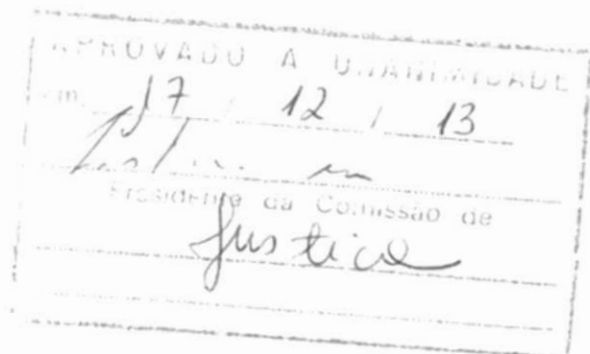 APROVADO A UNANIMIDADE
em 17 / 12 / 13
Presidente da Comissão de
Justica